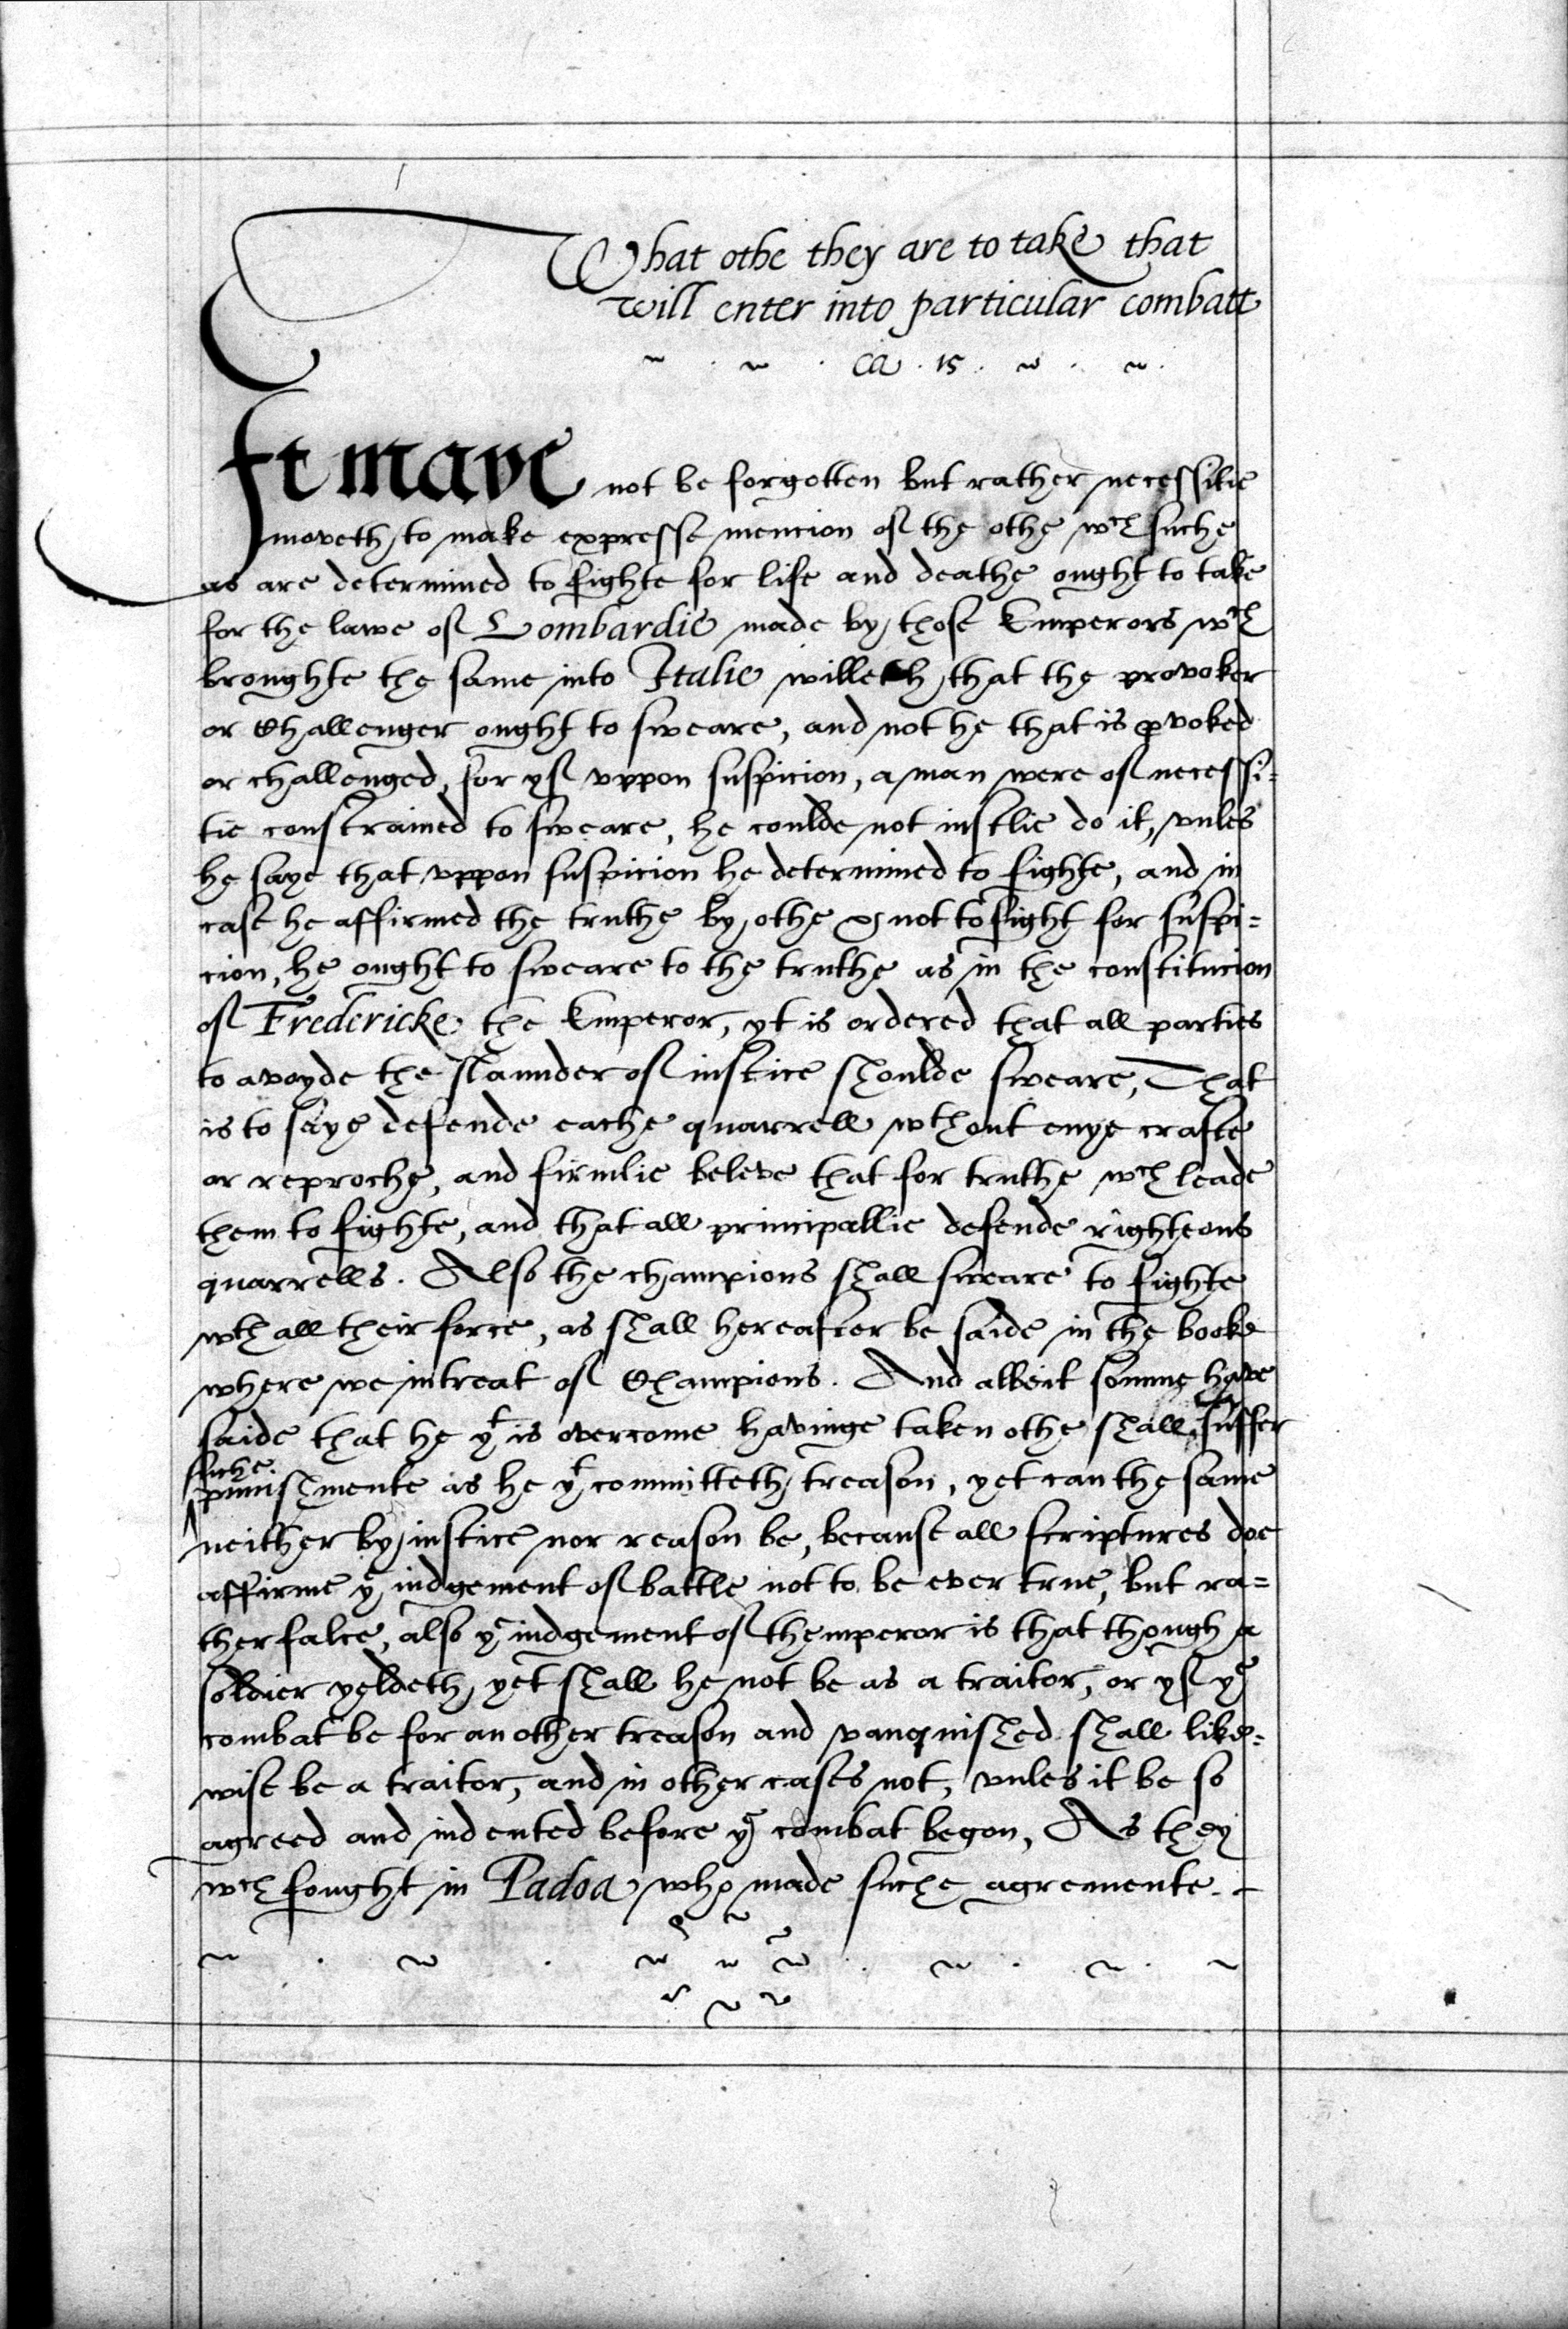 What othe they are to take that
will enter into particular combatt
Ca . 15 .
It maye not be forgotten but rather necessitie
moveth to make expresse mencion of the othe wch suche
as are determined to fighte for life and deathe ought to take
for the lawe of Lombardie made by those Emperors wch
broughte the same into Italie willeth that the provoker
or Challenger ought to sweare, and not he that is pvoked
or challenged, for yf vppon suspicion, a man were of necessi=
tie constrained to sweare, he coulde not iustlie do it, vnles
he saye that vppon suspicion he determined to fighte, and in
case he affirmed the truthe by othe & not to fight for suspi=
cion, he ought to sweare to the truthe as in the constitucion
of Fredericke the Emperor, yt is ordered that all parties
to avoyde the slaunder of iustice shoulde sweare, That
is to saye defende eache quarrell wthout enye crafte
or reproche, and firmlie beleve that for truthe wch leade
them to fighte, and that all principallie defende righteous
quarrells. Also the champions shall sweare to fighte
wth all their force, as shall hereafter be saide in the booke
where we intreat of Champions. And albeit somme have
saide that he yt is overcome havinge taken othe shall suffer
suche
punishmente as he yt committeth treason, yet can the same
neither by iustice nor reason be, because all scriptures doe
affirme ye iudgement of battle not to be ever true, but ra=
ther falce, also ye iudgement of themperor is that though a
soldier yeldeth, yet shall he not be as a traitor, or yf ye
combat be for an other treason and vanquished shall like=
wise be a traitor, and in other cases not, vnles it be so
agreed and indented before ye combat begon, As they
wch fought in Padoa who made suche agremente.